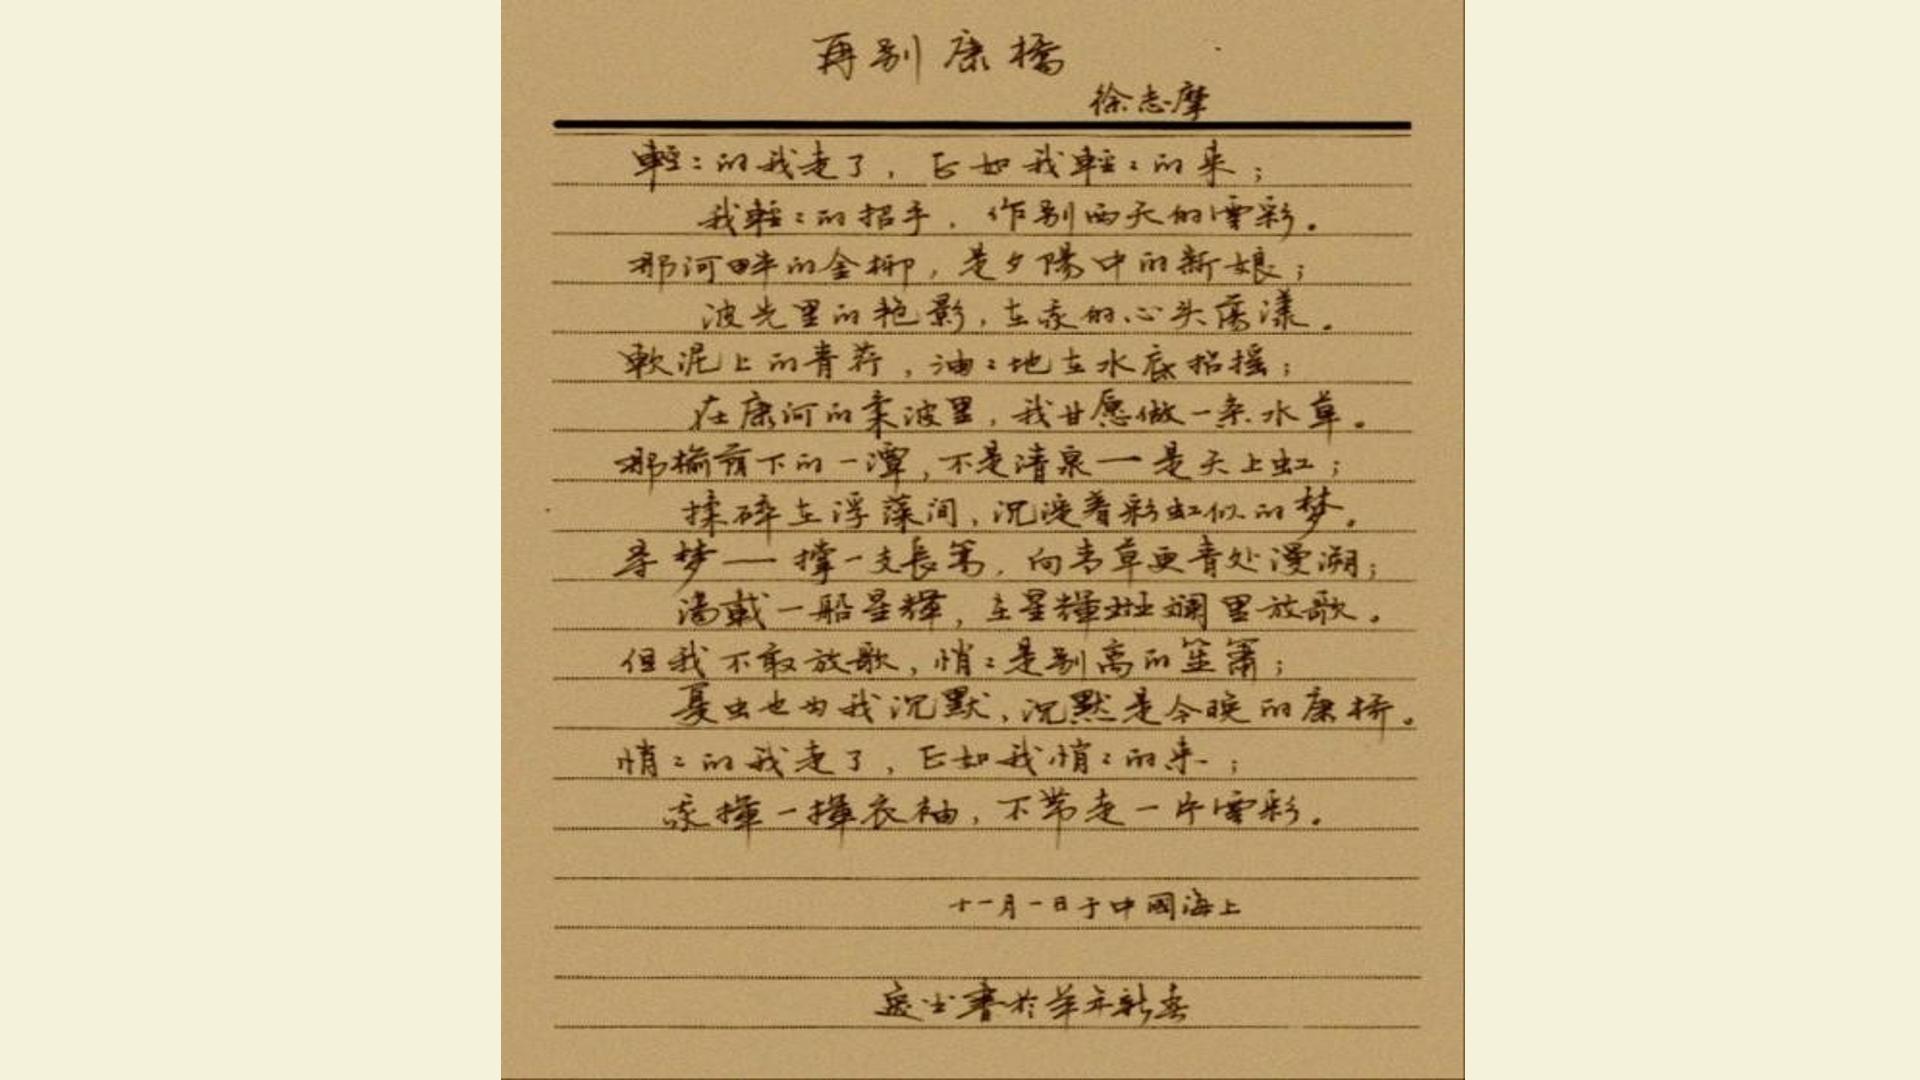 再别康橋
徐志摩
輕〻的我走了,正如我輕〻的来;
我輕〻的招手,作别西天的雲彩。
那河畔的金柳,是夕陽中的新娘;
波光里的艳影,在我的心头荡漾。
軟泥上的青荇,油〻地在水底招摇;
在康河的柔波里,我甘愿做一条水草。
那榆荫下的一潭,不是清泉—是天上虹;
揉碎在浮藻间,沉淀着彩虹似的梦。
寻梦——撑一支長篙,向青草更青处漫溯;
满載一船星輝,在星輝斑斓里放歌。
但我不敢放歌,悄〻是别离的笙箫;
夏虫也为我沉默,沉默是今晚的康桥。
悄〻的我走了,正如我悄〻的来;
我揮一揮衣袖,不带走一片雲彩。
十一月一日于中國海上
書於羊年新春